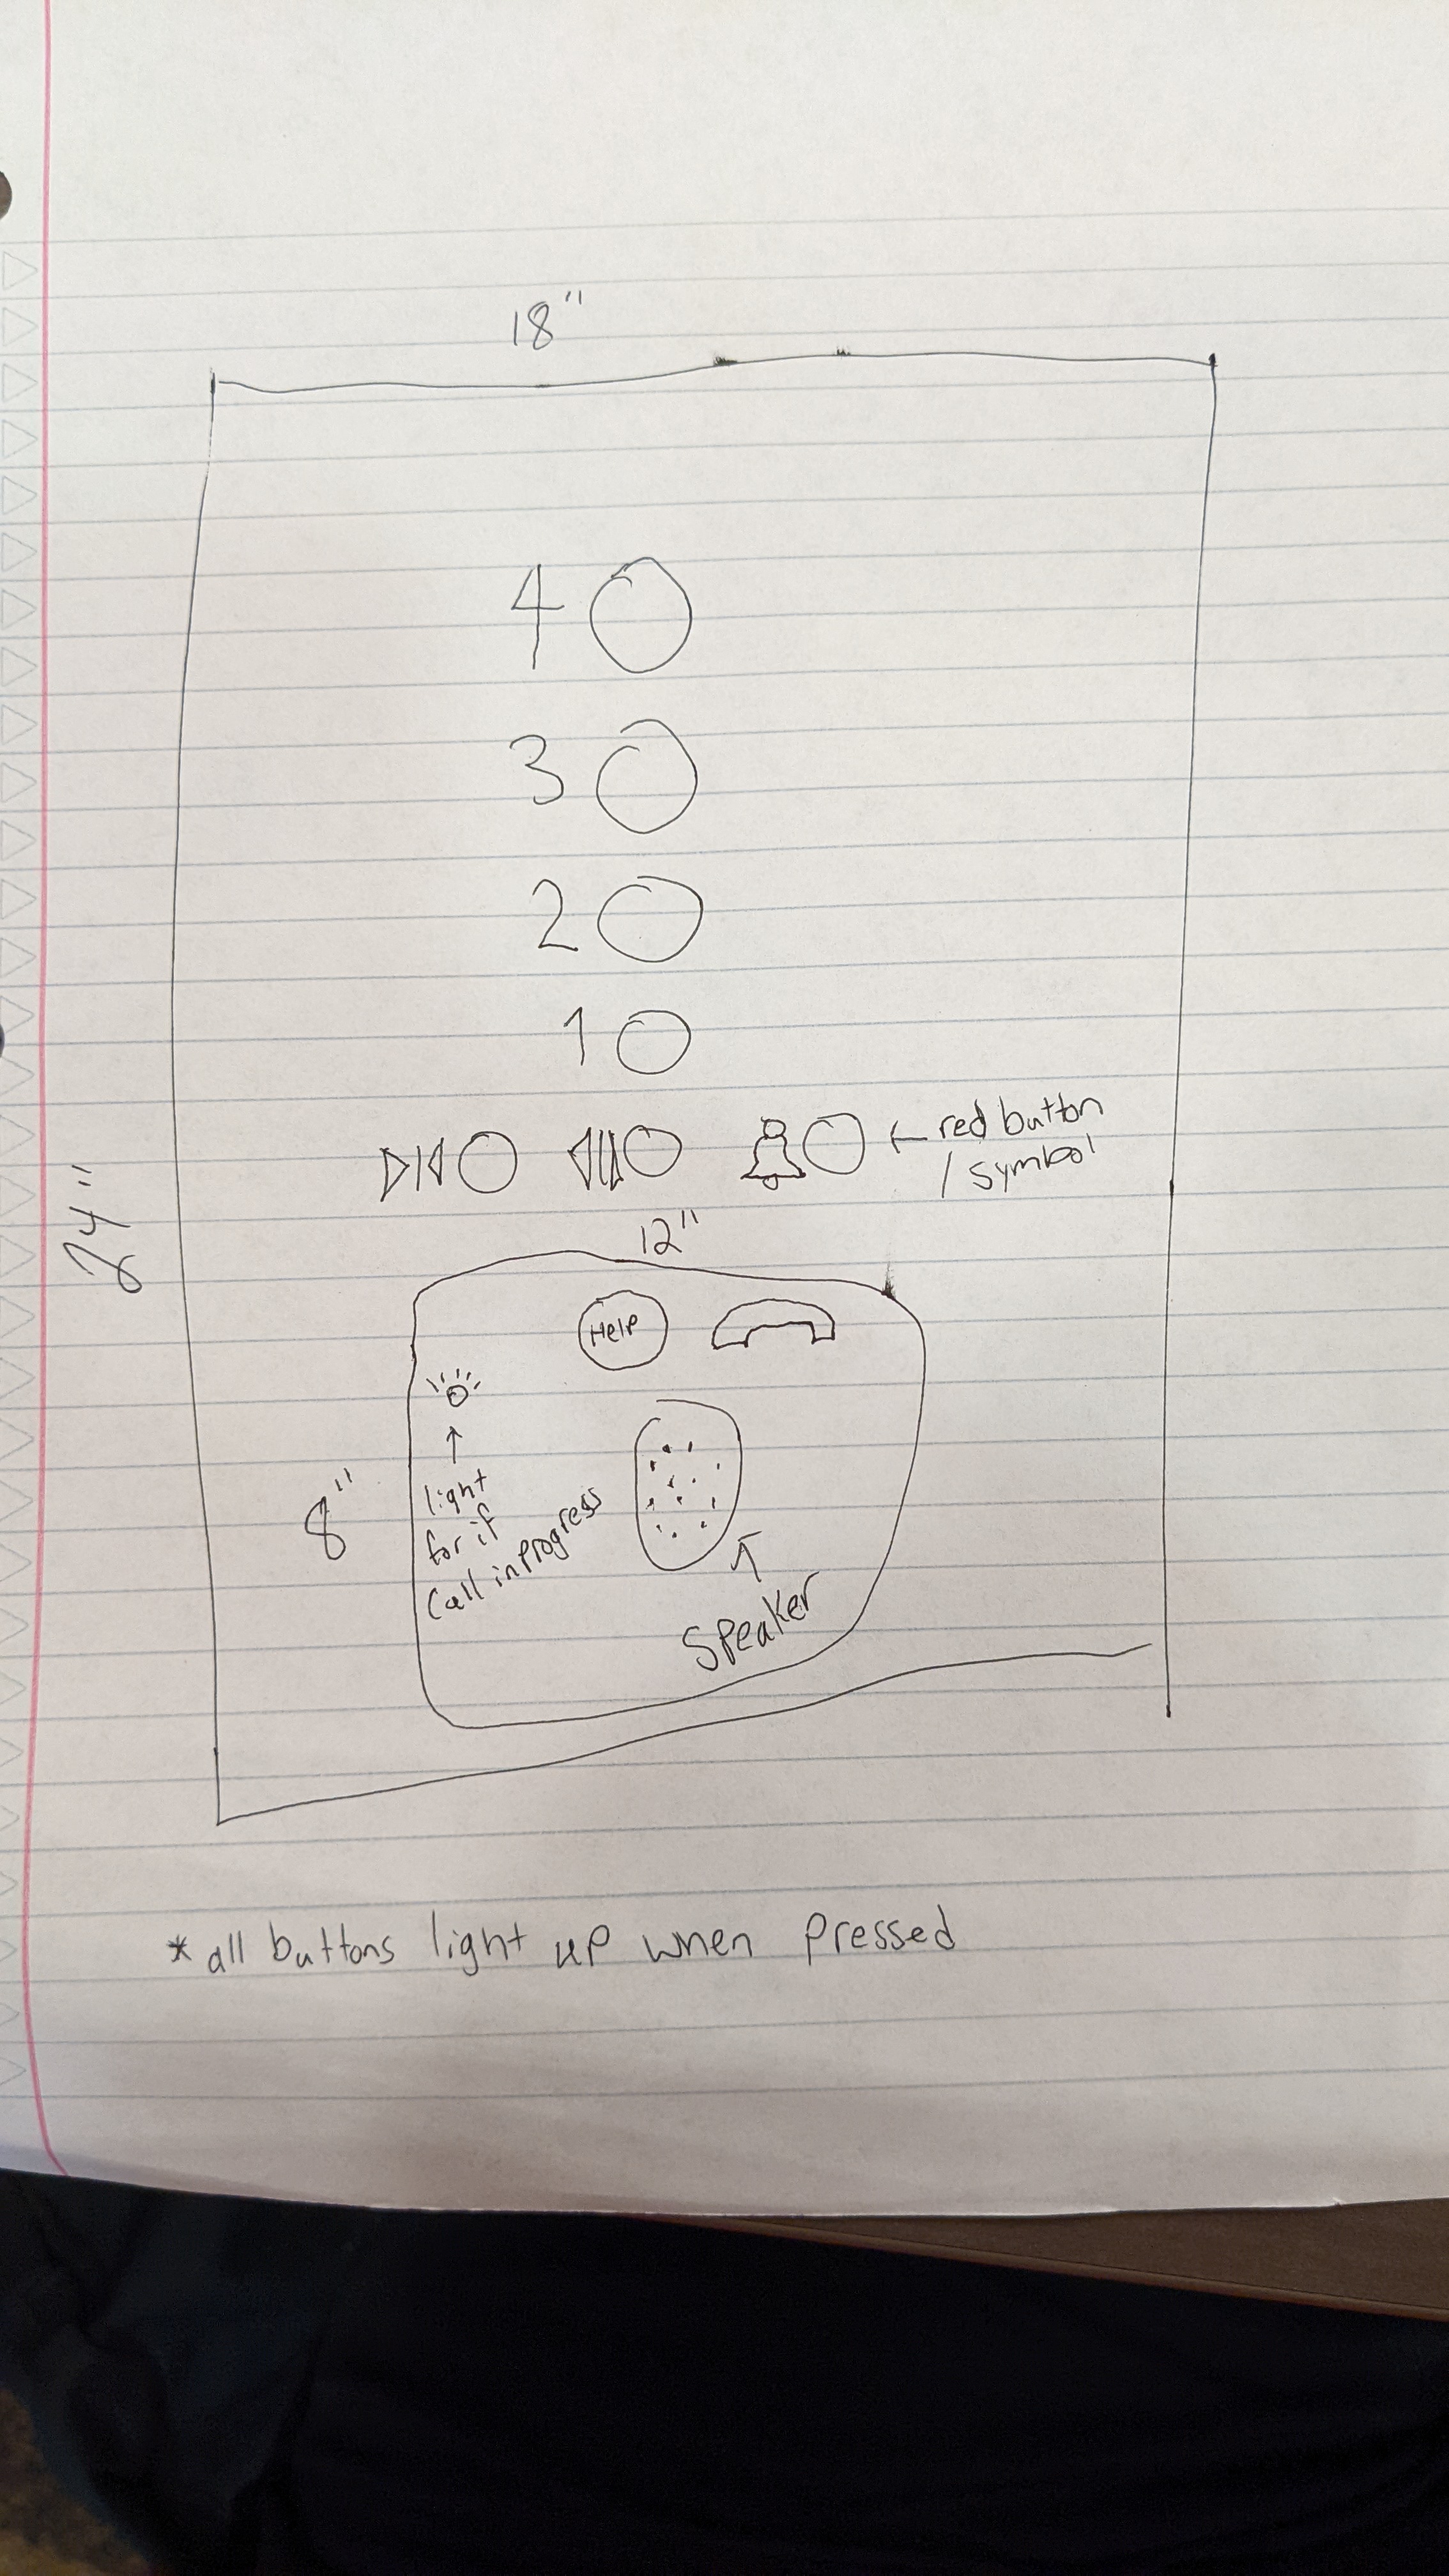 18"
4
3
2
1
← red button
/ symbol
24"
12"
Help
8"
light
for if
Call in progress
Speaker
* all buttons light up when pressed